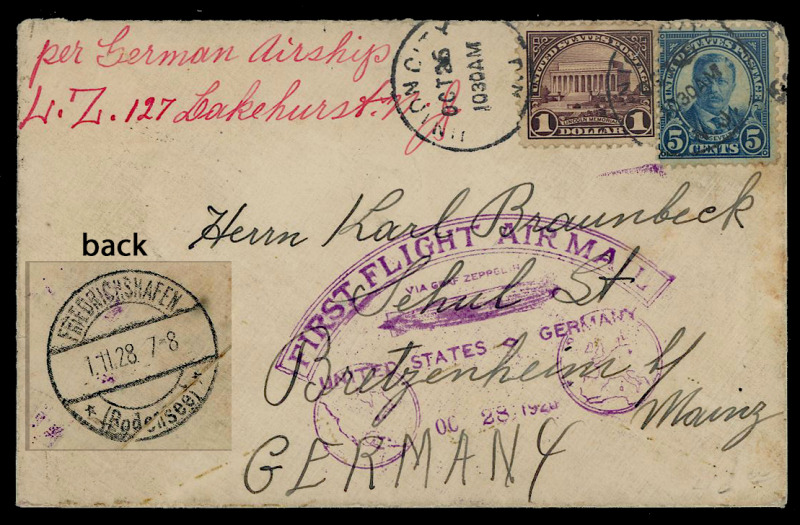 per German Airship
L. Z. 127 Lakehurst. N. J.
UNION CITY
OCT 26
1030AM
N.J.
UNITED STATES POSTAGE
LINCOLN MEMORIAL
1 DOLLAR 1
UNITED STATES POSTAGE
30AM
5 CENTS 5
Herrn Karl Braunbeck
Schul St
Bretzenheim b/
Mainz
GERMANY
FIRST FLIGHT AIR MAIL
VIA GRAF ZEPPELIN
UNITED STATES - GERMANY
OC 28 1928
back
FRIEDRICHSHAFEN
1.11.28. 7-8
* (Bodensee) *